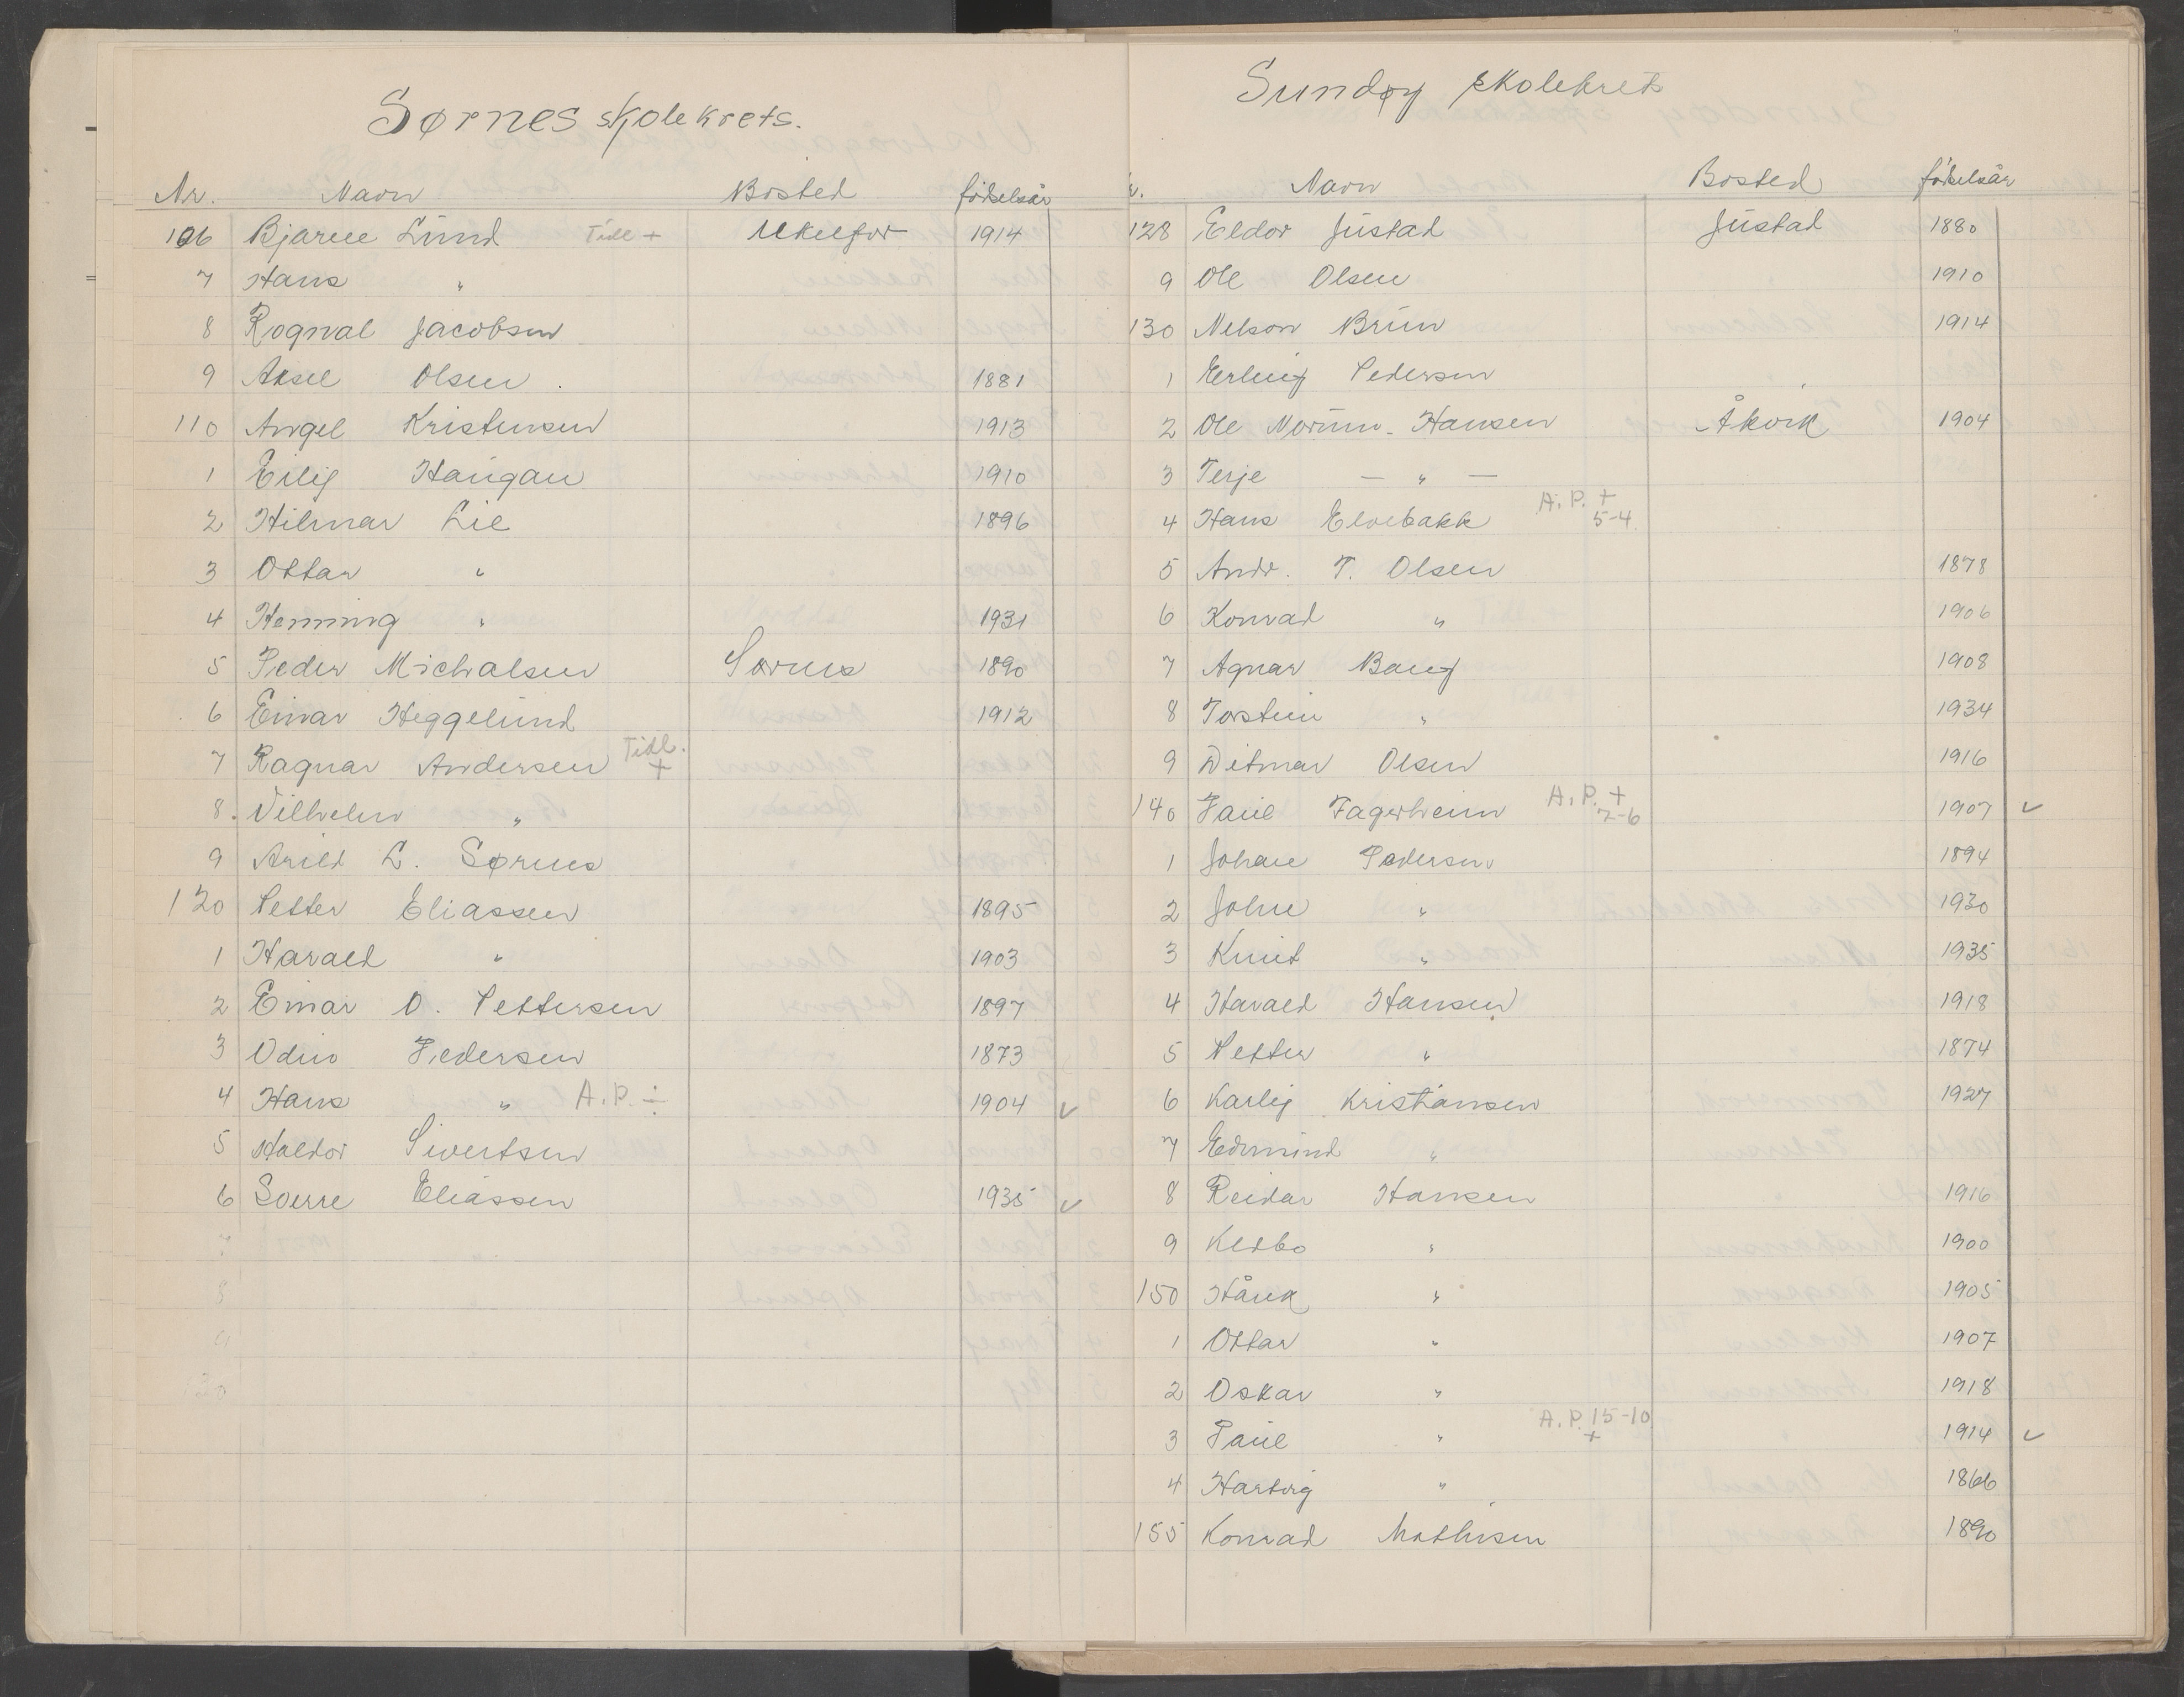 Sørnes skolekrets.
Nr. Navn Bosted fødselsår
106 Bjarne Lund Tidl + 1914
7 Hans "
8 Rognval Jacobsen
9 Aksel Olsen . 1881
110 Angel Kristensen 1913
1 Eilif Haugan 1910
2 Hilmar Lie 1896
3 Ottar "
4 Henning " 1931
5 Peder Michalsen Sørnes 1890
6 Einar Heggelund 1912
7 Ragnar Andersen Tidl. +
8. Vilhelm "
9 Arild L. Sørnes
120 Petter Eliassen 1895
1 Harald " 1903
2 Einar O. Pettersen 1897
3 Odin Pedersen 1873
4 Hans " A.P. ÷ 1904 ✓
5 Haldor Sivertsen
6 Sverre Eliassen 1935 ✓
7
8
9
Sundøy skolekrets
Navn Bosted fødselsår
128 Eldor Justad Justad 1880
9 Ole Olsen 1910
130 Nelson Bruun 1914
1 Erling Pedersen
2 Ole Norum. Hansen Åkvik 1904
3 Terje — " —
4 Hans Elvebakk A.P. + 5-4
5 Andr. T. Olsen 1878
6 Konrad " 1906
7 Agnar Bang 1908
8 Torstein " 1934
9 Ditmar Olsen 1916
140 Paul Fagerheim A.P. + 7-6 1907 ✓
1 Johan Pedersen 1894
2 John " 1930
3 Knut " 1935
4 Harald Hansen 1918
5 Petter " 1874
6 Karlij Kristiansen 1927
7 Edmund "
8 Reidar Hansen 1916
9 Kletbo " 1900
150 Håric " 1905
1 Ottar " 1907
2 Oskar " 1918
3 Paul " A.P. 15-10 + 1914 ✓
4 Hartvig " 1866
155 Konrad Mathisen 1890